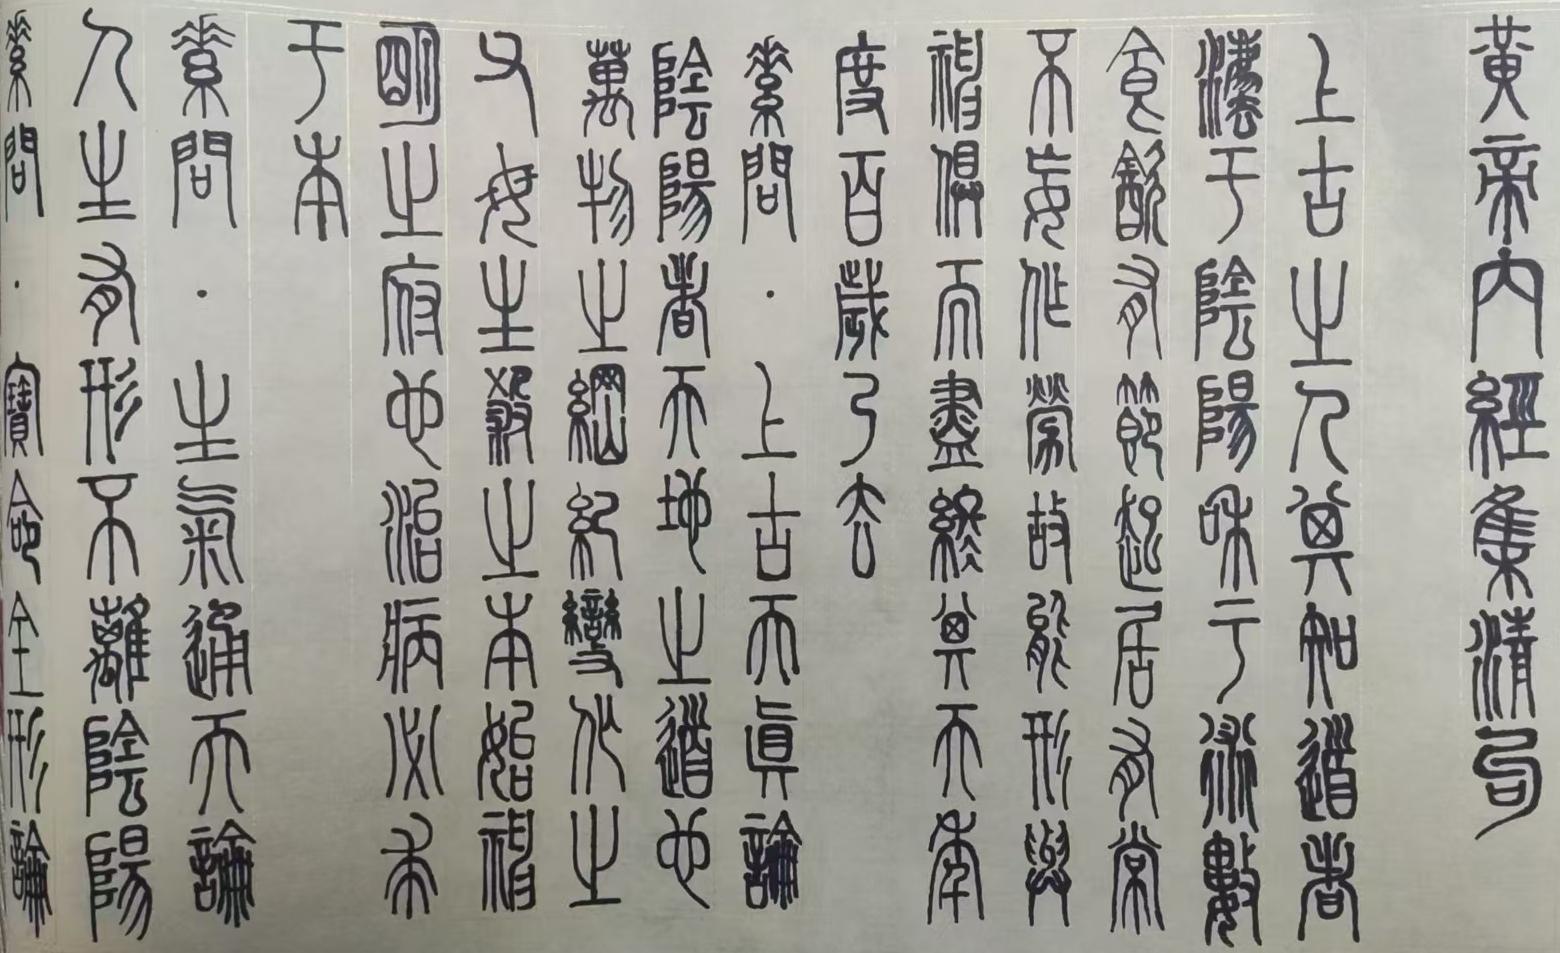 黃帝內經集清句
上古之人其知道者
灋于陰陽和于術數
食飲有節起居有常
不妄作勞故能形與
神俱而盡終其天年
度百歲乃去
素問·上古天真論
陰陽者天地之道也
萬物之綱紀變化之
父母生殺之本始神
明之府也治病必求
于本
素問·生氣通天論
人生有形不離陰陽
素問·寶命全形論